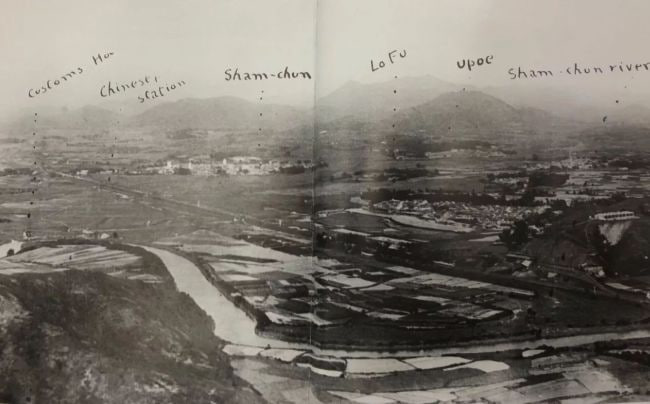 Customs Hou
Chinese
station
Sham-chun
LoFu
UPOE
Sham-chun river